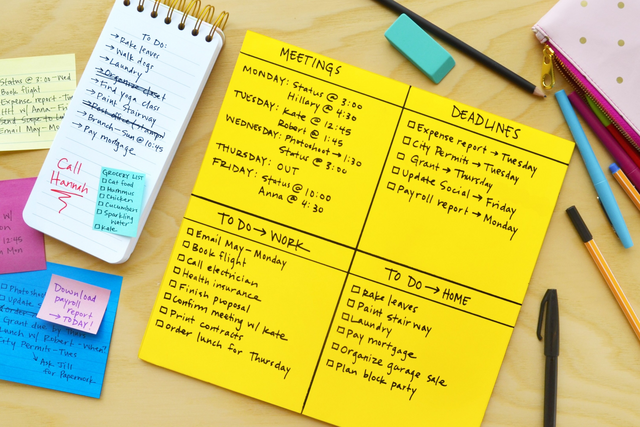 Status @ 3:00 - Wed
Book flight
Expense report - Tu
HH w/ Anna - Fri
Email May - Mon
To Do:
→ Rake leaves
→ Walk dogs
→ Laundry
→ Organize closet
→ Find yoga class
→ Paint Stairway
→ Brunch - Sun @ 10:45
→ Pay mortgage
Call
Hannah
GROCERY LIST
☐ Cat food
☐ Hummus
☐ Chicken
☐ Cucumbers
☐ Sparkling
water
☐ Kale
w/
12:45
Mon
Download
payroll
report
→ TODAY!
☐ Photosh
☐ Update S
Grant due by
Lunch w/ Robert - when?
City Permits - Tues
↳ Ask Jill
for Paperwork
MEETINGS
MONDAY: Status @ 3:00
Hillary @ 4:30
TUESDAY: Kate @ 12:45
Robert @ 1:45
WEDNESDAY: Photoshoot → 1:30
Status @ 3:00
THURSDAY: OUT
FRIDAY: Status @ 10:00
Anna @ 4:30
DEADLINES
☐ Expense report → Tuesday
☐ City Permits → Tuesday
☐ Grant → Thursday
☐ Update Social → Friday
☐ Payroll report → Monday
TO DO → WORK
☐ Email May - Monday
☐ Book flight
☐ Call electrician
☐ Health insurance
☐ Finish proposal
☐ Confirm meeting w/ Kate
☐ Print contracts
☐ Order lunch for Thursday
TO DO → HOME
☐ Rake leaves
☐ Paint Stairway
☐ Laundry
☐ Pay mortgage
☐ Organize garage sale
☐ Plan block party